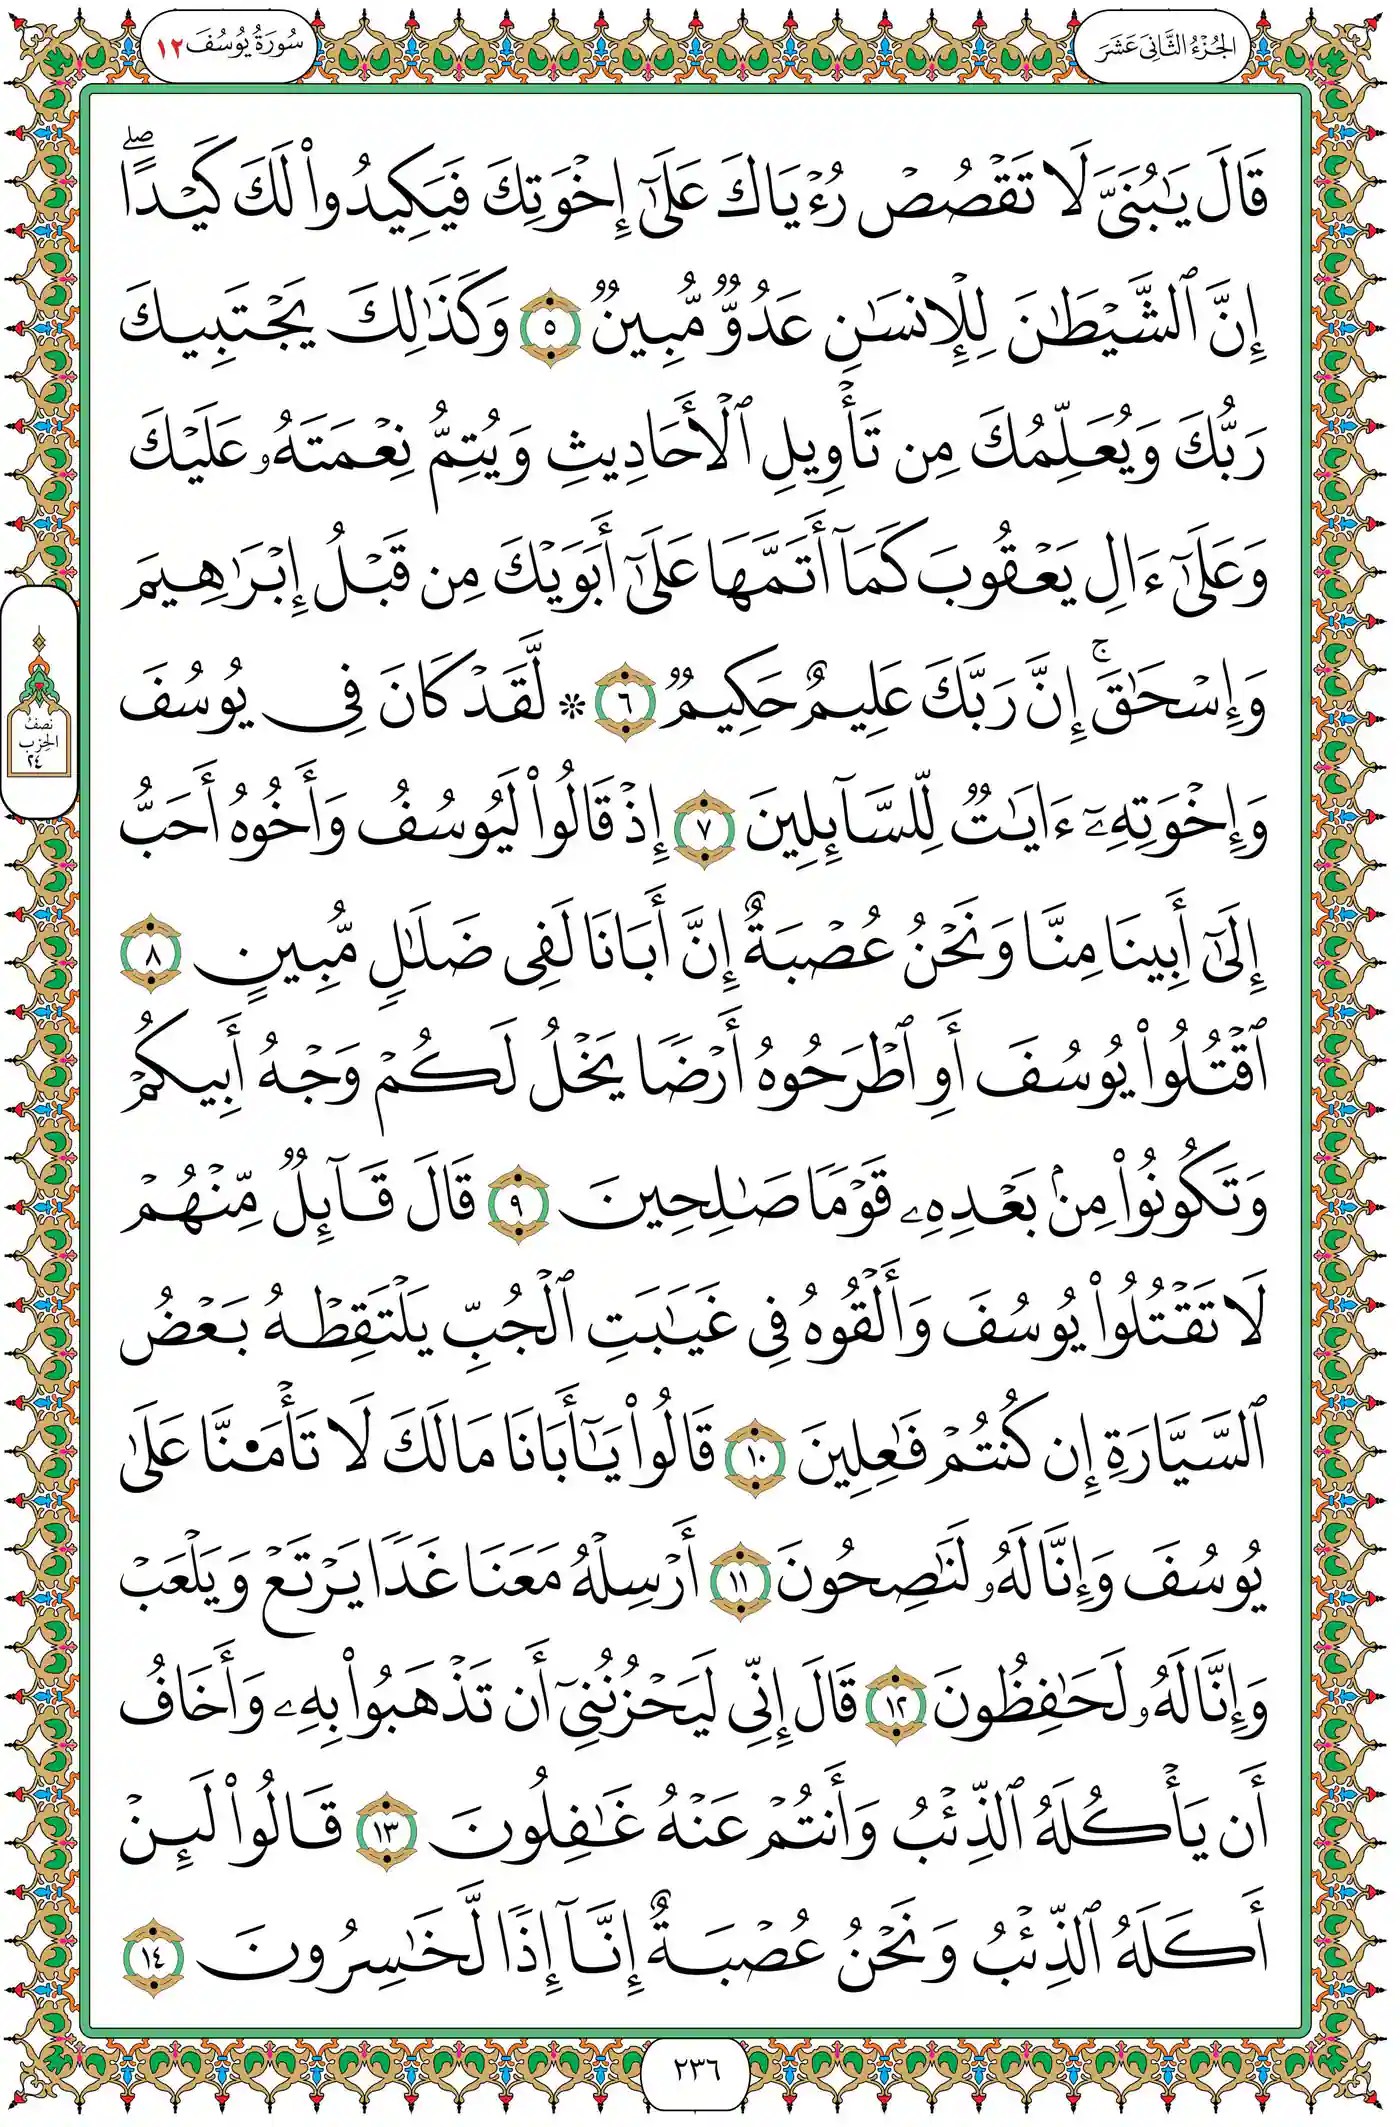 الجُزْءُ الثَّانِيَ عَشَرَ
سُورَةُ يُوسُفَ ١٢
قَالَ يَٰبُنَىَّ لَا تَقْصُصْ رُءْيَاكَ عَلَىٰٓ إِخْوَتِكَ فَيَكِيدُوا۟ لَكَ كَيْدًا ۖ
إِنَّ ٱلشَّيْطَٰنَ لِلْإِنسَٰنِ عَدُوٌّ مُّبِينٌ ٥ وَكَذَٰلِكَ يَجْتَبِيكَ
رَبُّكَ وَيُعَلِّمُكَ مِن تَأْوِيلِ ٱلْأَحَادِيثِ وَيُتِمُّ نِعْمَتَهُۥ عَلَيْكَ
وَعَلَىٰٓ ءَالِ يَعْقُوبَ كَمَآ أَتَمَّهَا عَلَىٰٓ أَبَوَيْكَ مِن قَبْلُ إِبْرَٰهِيمَ
وَإِسْحَٰقَ ۚ إِنَّ رَبَّكَ عَلِيمٌ حَكِيمٌ ٦ * لَّقَدْ كَانَ فِى يُوسُفَ
نصف
الحزب
٢٤
وَإِخْوَتِهِۦٓ ءَايَٰتٌ لِّلسَّآئِلِينَ ٧ إِذْ قَالُوا۟ لَيُوسُفُ وَأَخُوهُ أَحَبُّ
إِلَىٰٓ أَبِينَا مِنَّا وَنَحْنُ عُصْبَةٌ إِنَّ أَبَانَا لَفِى ضَلَٰلٍ مُّبِينٍ ٨
ٱقْتُلُوا۟ يُوسُفَ أَوِ ٱطْرَحُوهُ أَرْضًا يَخْلُ لَكُمْ وَجْهُ أَبِيكُمْ
وَتَكُونُوا۟ مِنۢ بَعْدِهِۦ قَوْمًا صَٰلِحِينَ ٩ قَالَ قَآئِلٌ مِّنْهُمْ
لَا تَقْتُلُوا۟ يُوسُفَ وَأَلْقُوهُ فِى غَيَٰبَتِ ٱلْجُبِّ يَلْتَقِطْهُ بَعْضُ
ٱلسَّيَّارَةِ إِن كُنتُمْ فَٰعِلِينَ ١٠ قَالُوا۟ يَٰٓأَبَانَا مَا لَكَ لَا تَأْمَ۬نَّا عَلَىٰ
يُوسُفَ وَإِنَّا لَهُۥ لَنَٰصِحُونَ ١١ أَرْسِلْهُ مَعَنَا غَدًا يَرْتَعْ وَيَلْعَبْ
وَإِنَّا لَهُۥ لَحَٰفِظُونَ ١٢ قَالَ إِنِّى لَيَحْزُنُنِىٓ أَن تَذْهَبُوا۟ بِهِۦ وَأَخَافُ
أَن يَأْكُلَهُ ٱلذِّئْبُ وَأَنتُمْ عَنْهُ غَٰفِلُونَ ١٣ قَالُوا۟ لَئِنْ
أَكَلَهُ ٱلذِّئْبُ وَنَحْنُ عُصْبَةٌ إِنَّآ إِذًا لَّخَٰسِرُونَ ١٤
٢٣٦